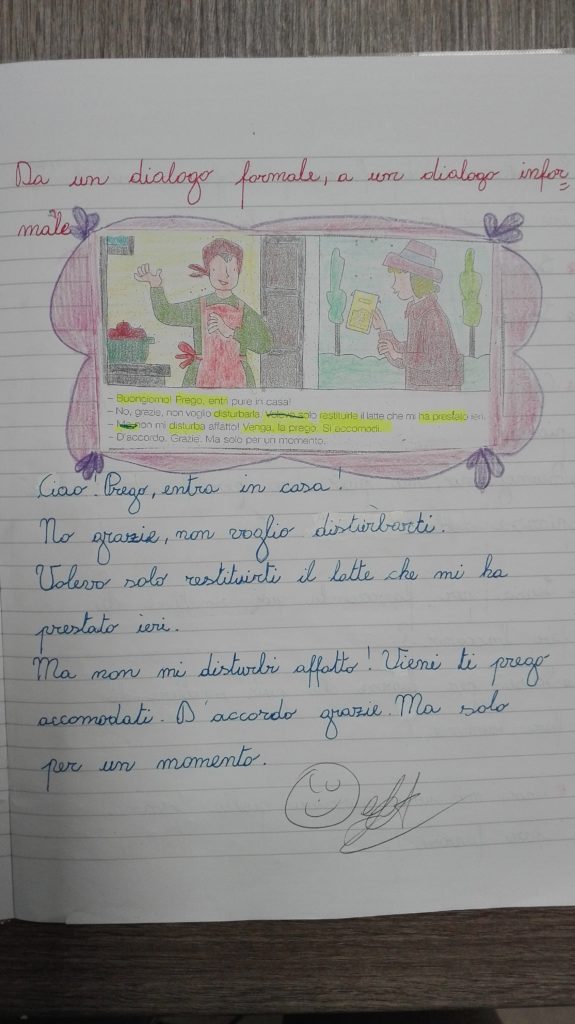 Da un dialogo formale, a un dialogo infor=
male
– Buongiorno! Prego, entri pure in casa!
– No, grazie, non voglio disturbarla. Volevo solo restituirle il latte che mi ha prestato ieri.
– Ma non mi disturba affatto! Venga, la prego. Si accomodi.
– D'accordo. Grazie. Ma solo per un momento.
Ciao! Prego, entra in casa!
No grazie, non voglio disturbarti.
Volevo solo restituirti il latte che mi ha
prestato ieri.
Ma non mi disturbi affatto! Vieni ti prego
accomodati. D'accordo grazie. Ma solo
per un momento.